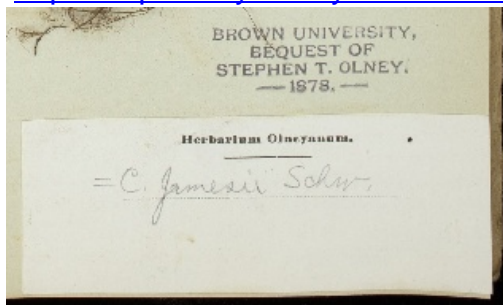 BROWN UNIVERSITY,
BEQUEST OF
STEPHEN T. OLNEY.
— 1878. —
Herbarium Olneyanum.
= C. Jamesii Schw.